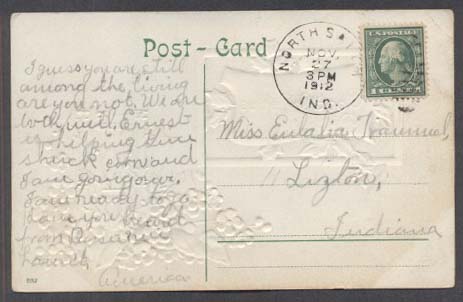 Post - Card
NORTH SALEM
NOV
27
3 PM
1912
IND.
U.S. POSTAGE
1 CENT 1
I guess you are still
among the living
are you not. We are
both well, Ernest
is helping
shuck corn and
I am going over.
I am ready to go
have you heard
from
America
Miss Eulalia Trammel,
Lizton,
Indiana